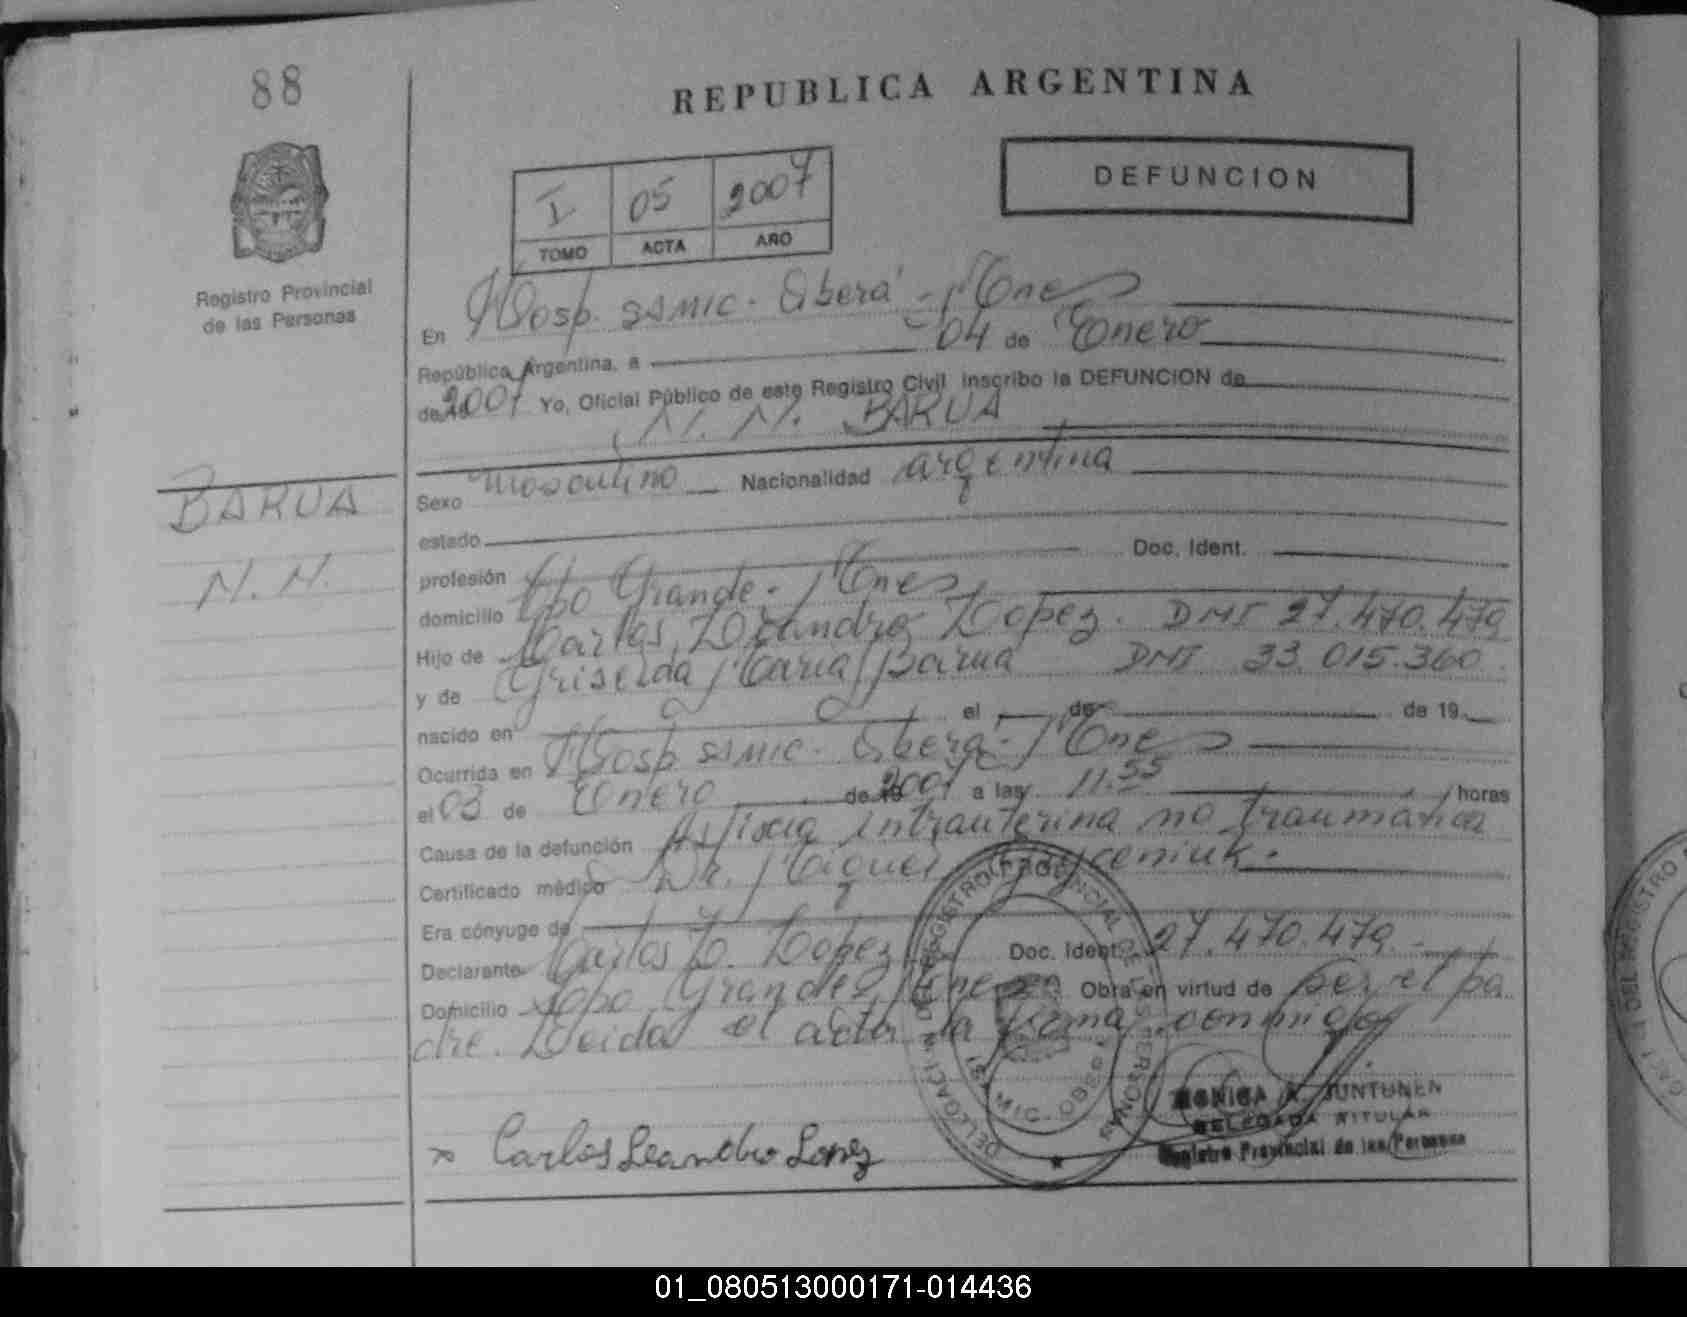 88
REPUBLICA ARGENTINA
DEFUNCION
I 05 2007
TOMO ACTA AÑO
Registro Provincial
de las Personas
En Hosp. SAMIC - Oberá - Mnes
República Argentina, a 04 de Enero
de 2007 Yo, Oficial Público de este Registro Civil inscribo la DEFUNCION de
N. N. BARUA
BARUA
N. N.
Sexo masculino Nacionalidad argentina
estado
profesión Doc. Ident.
domicilio Cpo Grande - Mnes
Hijo de Carlos Leandro Lopez. DNI 27.470.479
y de Griselda Maria Barua DNI 33.015.360
nacido en el de de 19
Ocurrida en Hosp SAMIC - Oberá - Mnes
el 03 de Enero de 2007 a las 11.55 horas
Causa de la defunción Asfixia intrauterina no traumatica
Certificado médico Dr. Miguel
Era cónyuge de
Declarante Carlos L. Lopez Doc. Ident. 27.470.479
Domicilio Cpo Grande Mnes Obra en virtud de ser el pa
dre. Leida el acta la firma conmigo
Carlos Leandro Lopez
MONICA JUNTUNEN
DELEGADA TITULAR
Registro Provincial de las Personas
01_080513000171-014436